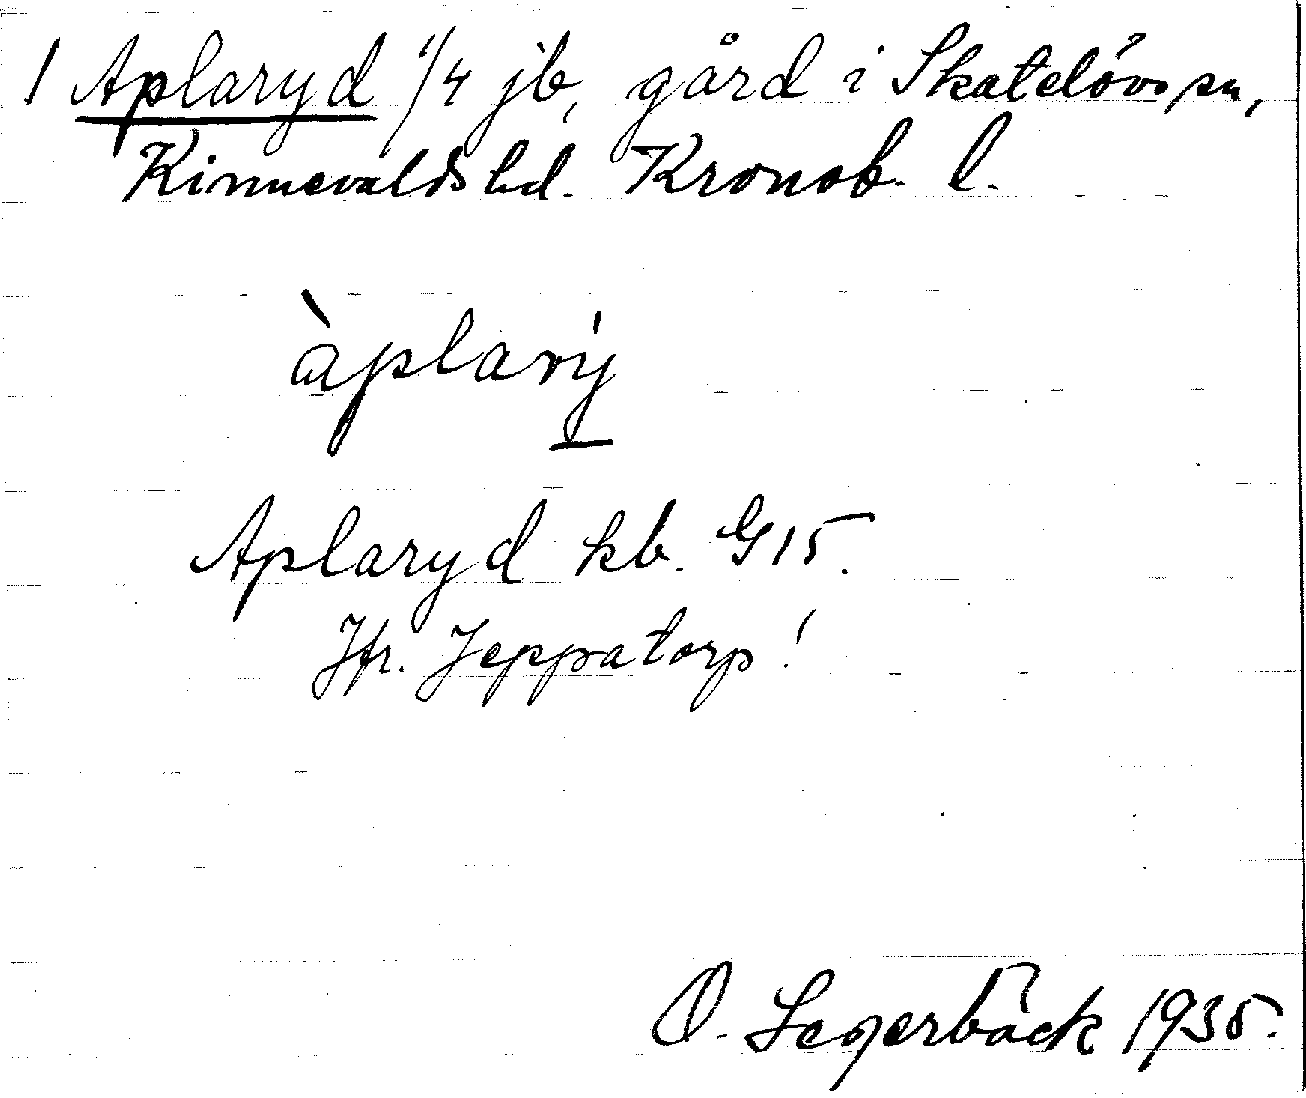 1 Aplaryd 1/4 jb, gård i Skatelövs sn,
Kinnevalds hd. Kronob. l.
àplarý
Aplaryd kb. G15.
Jfr. Jeppatorp!
O. Segerbäck 1935.